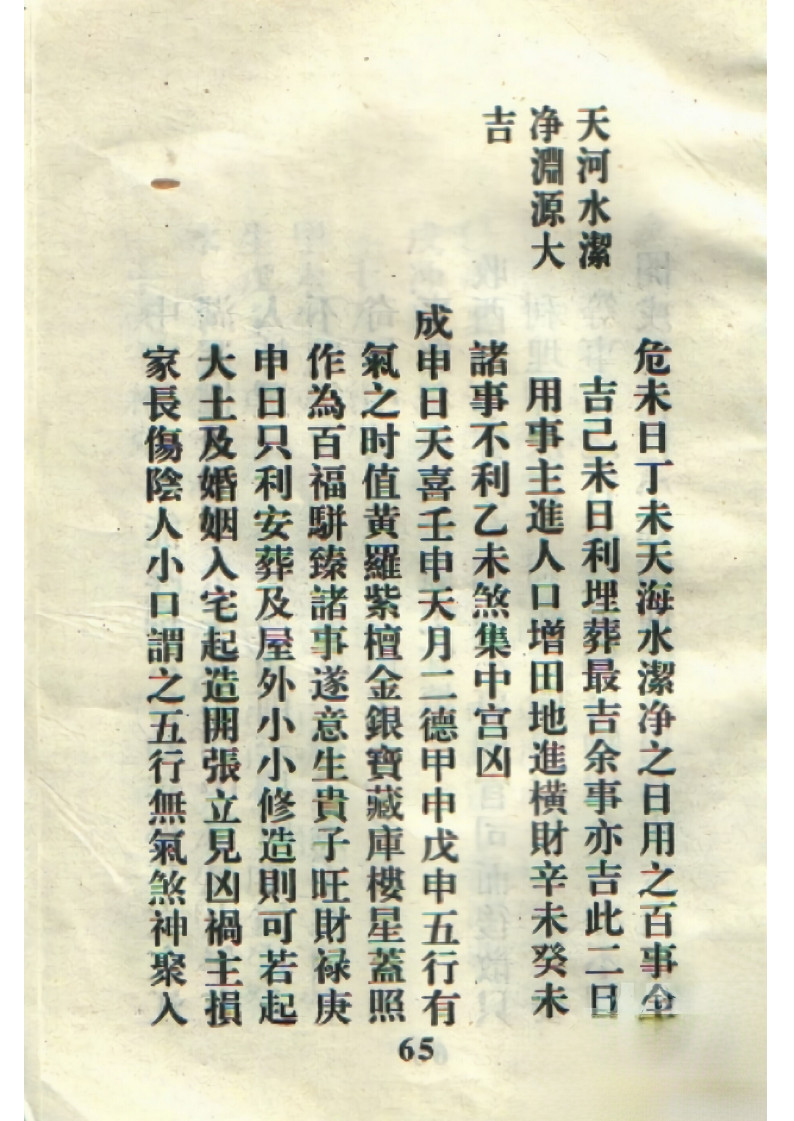 天河水潔
净淵源大
吉
危未日丁未天海水潔净之日用之百事全
吉己未日利埋葬最吉余事亦吉此二日
用事主進人口增田地進橫財辛未癸未
諸事不利乙未煞集中宫凶
成申日天喜壬申天月二德甲申戊申五行有
氣之时值黄羅紫檀金銀寶藏庫樓星蓋照
作為百福駢臻諸事遂意生貴子旺財禄庚
申日只利安葬及屋外小小修造則可若起
大土及婚姻入宅起造開張立見凶禍主損
家長傷陰人小口謂之五行無氣煞神聚入
65